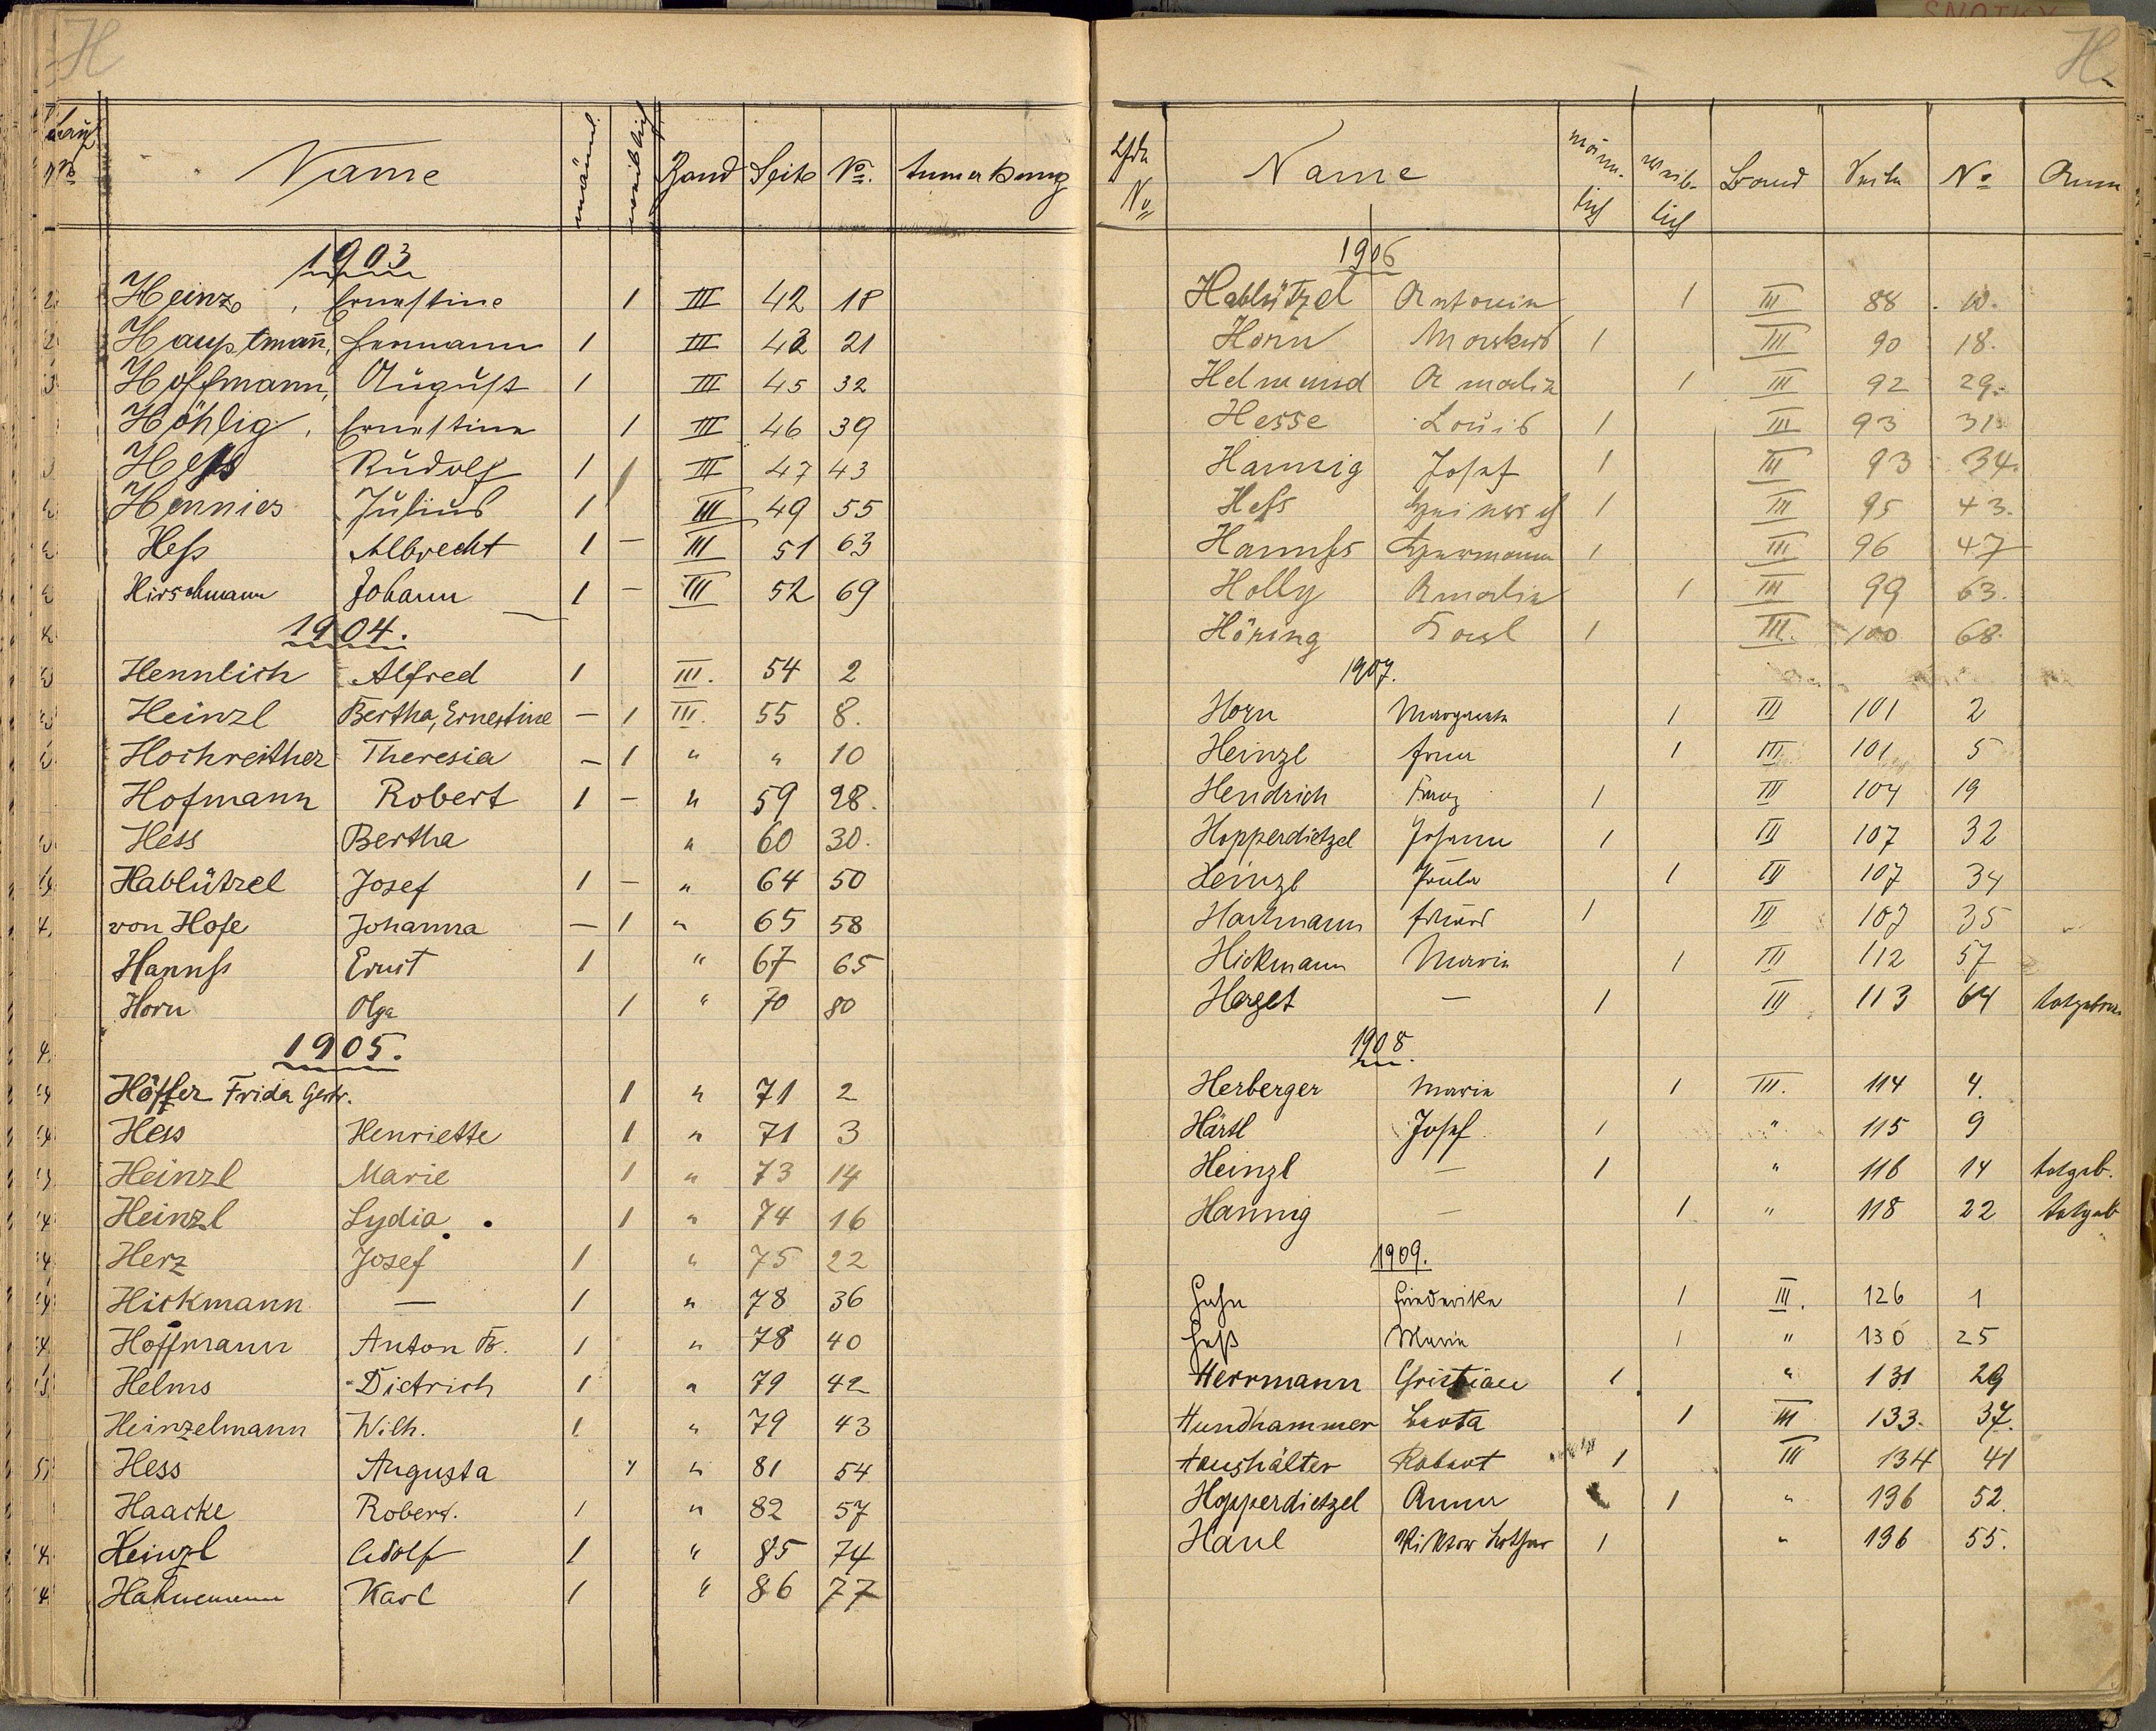 H
Name männl. weiblich Band Seite No. Anmerkung
1903
Heinz, Ernestine 1 III 42 18
Hauptmañ, Hermann 1 III 42 21
Hoffmann, August 1 III 45 32
Höhlig, Ernestine 1 III 46 39
Heß Rudolf 1 III 47 43
Hennies Julius 1 III 49 55
Heß Albrecht 1 — III 51 63
Hirschmann Johann 1 — III 52 69
1904.
Hennlich Alfred 1 III. 54 2
Heinzl Bertha, Ernestine — 1 III. 55 8.
Hochreither Theresia — 1 " " 10
Hofmann Robert 1 — " 59 28.
Hess Bertha " 60 30.
Hablützel Josef 1 — " 64 50
von Hofe Johanna — 1 " 65 58
Hannß Ernst 1 " 67 65
Horn Olga 1 " 70 80
1905.
Höffer Frida Gertr. 1 " 71 2
Hess Henriette 1 " 71 3
Heinzl Marie 1 " 73 14
Heinzl Lydia 1 " 74 16
Herz Josef 1 " 75 22
Hickmann — 1 " 78 36
Hoffmann Anton Fr. 1 " 78 40
Helms Dietrich 1 " 79 42
Heinzelmann Wilh. 1 " 79 43
Hess Augusta 1 " 81 54
Haacke Robert. 1 " 82 57
Heinzl Adolf 1 " 85 74
Hahnemann Karl 1 " 86 77
H.
Lfde No Name männ-lich weib-lich Band Seite No Anm
1906
Hablützel Antonia 1 III 88 10.
Horn Markus 1 III 90 18.
Helmund Amalia 1 III 92 29.
Hesse Louis 1 III 93 31
Hannig Josef 1 III 93 34.
Heß Heinrich 1 III 95 43.
Hannßs Hermann 1 III 96 47
Holly Amalia 1 III 99 63.
Höring Karl 1 III. 100 68.
1907.
Horn Margareta 1 III 101 2
Heinzl Irma 1 III 101 5
Hendrich Franz 1 III 104 19
Hopperdietzel Johann 1 III 107 32
Heinzl Paula 1 III 107 34
Hartmann Eduard 1 III 107 35
Hickmann Maria 1 III 112 57
Herget — 1 III 113 64 totgeboren
1908.
Herberger Maria 1 III. 114 4.
Härtl Josef 1 " 115 9
Heinzl — 1 " 116 14 totgeb.
Hannig — 1 " 118 22 totgeb
1909.
Hahn Friederike 1 III. 126 1
Heß Maria 1 " 130 25
Herrmann Christian 1 " 131 29
Hundhammer Berta 1 III 133. 37.
Haushälter Robert 1 III 134 41
Hopperdietzel Anna 1 " 136 52.
Haul Viktor Lothar 1 " 136 55.